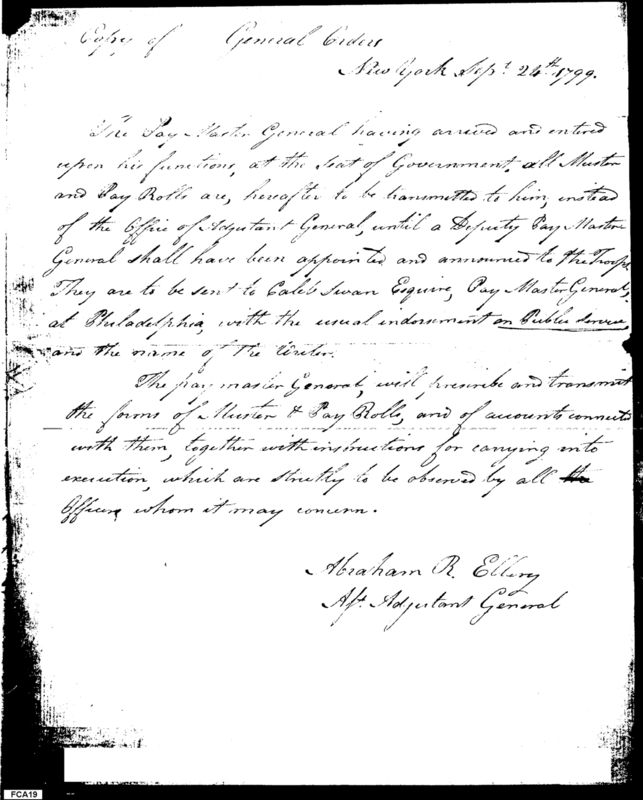 Copy of General Orders
New York Sept. 24th 1799.
The Pay Master General having arrived and entered
upon his functions, at the Seat of Government, all Muster
and Pay Rolls are, hereafter to be transmitted to him, instead
of the Office of Adjutant General, until a Deputy Pay Master
General shall have been appointed and announced to the Troops.
They are to be sent to Caleb Swan Esquire, Pay Master General,
at Philadelphia, with the usual indorsement on Public Service,
and the name of the Writer.
The pay master General, will prescribe and transmit
the forms of Muster & Pay Rolls, and of accounts connected
with them, together with instructions for carrying into
execution, which are strictly to be observed by all the
Officers whom it may concern.
Abraham R. Ellery
Asst. Adjutant General
FCA19